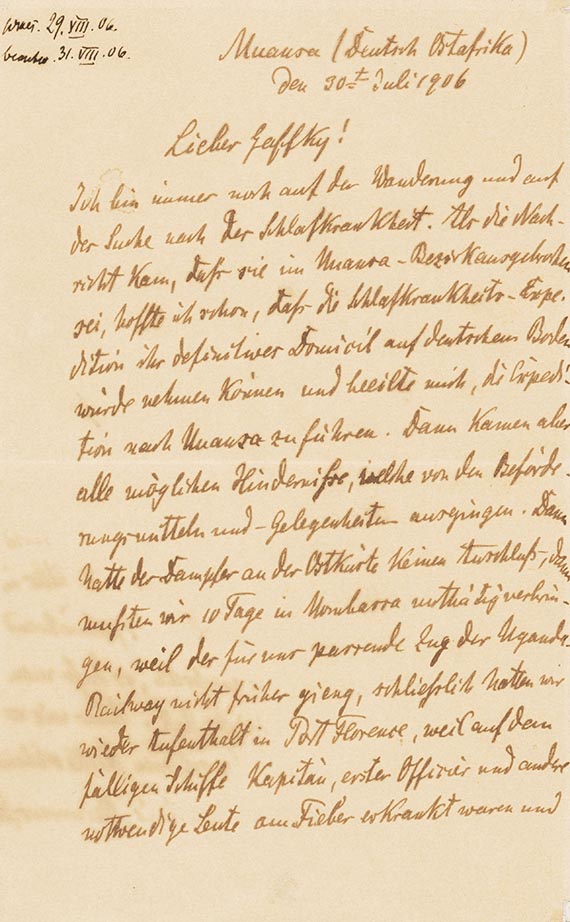 29. VIII. 06.
31. VIII. 06.
Muansa (Deutsch Ostafrika)
den 30ᵗ Juli 1906
Lieber Gaffky!
Ich bin immer noch auf der Wanderung und auf
der Suche nach der Schlafkrankheit. Als die Nach-
richt kam, daß sie im Muansa-Bezirk ausgebrochen
sei, hoffte ich schon, daß die Schlafkrankheits-Expe-
dition ihr definitives Domicil auf deutschem Boden
würde nehmen können und beeilte mich, die Expedi-
tion nach Muansa zu führen. Dann kamen aber
alle möglichen Hindernisse, welche von den Beförde-
rungsmitteln und -Gelegenheiten ausgingen. Dann
hatte der Dampfer an der Ostküste keinen Anschluß, dann
mußten wir 10 Tage in Mombassa unthätig verbrin-
gen, weil der für uns passende Zug der Uganda-
Railway nicht früher gieng, schließlich hatten wir
wieder Aufenthalt in Port Florence, weil auf dem
fälligen Schiffe Kapitän, erster Officier und andere
nothwendige Leute am Fieber erkrankt waren und